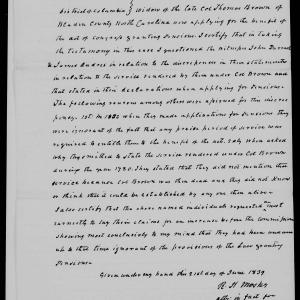 District of Columbia } widow of the late Col Thomas Brown of
Bladen County North Carolina now applying for the benefit of
the act of congress granting Pensions. I certify that in taking
the testimony in this case I questioned the witnesses John
& James in relation to the discrepancies in their statements
in relation to the service rendered by them under Col Brown and
that stated in their declarations when applying for Pensions.
The following reasons among others were assigned for this discre-
pancy. 1st. In 1832 when they made applications for Pensions they
were ignorant of the fact that any precise period of service was
required to entitle them to the benefit of the act. 2dly when asked
why they omitted to state the service rendered under Col Brown
during the year 1780. They stated they did not mention that
service because Col Brown was then dead and they did not know
or think that it could be established by any one then alive
I also certify that the above named individuals requested most
earnestly to say their claims for an increase before the commissioner
showing most conclusively to my mind that they had been una
up to that time ignorant of the provisions of the Law granting
Pensions.
Given under my hand this 21st day of June 1839
R. H.
atty in fact for